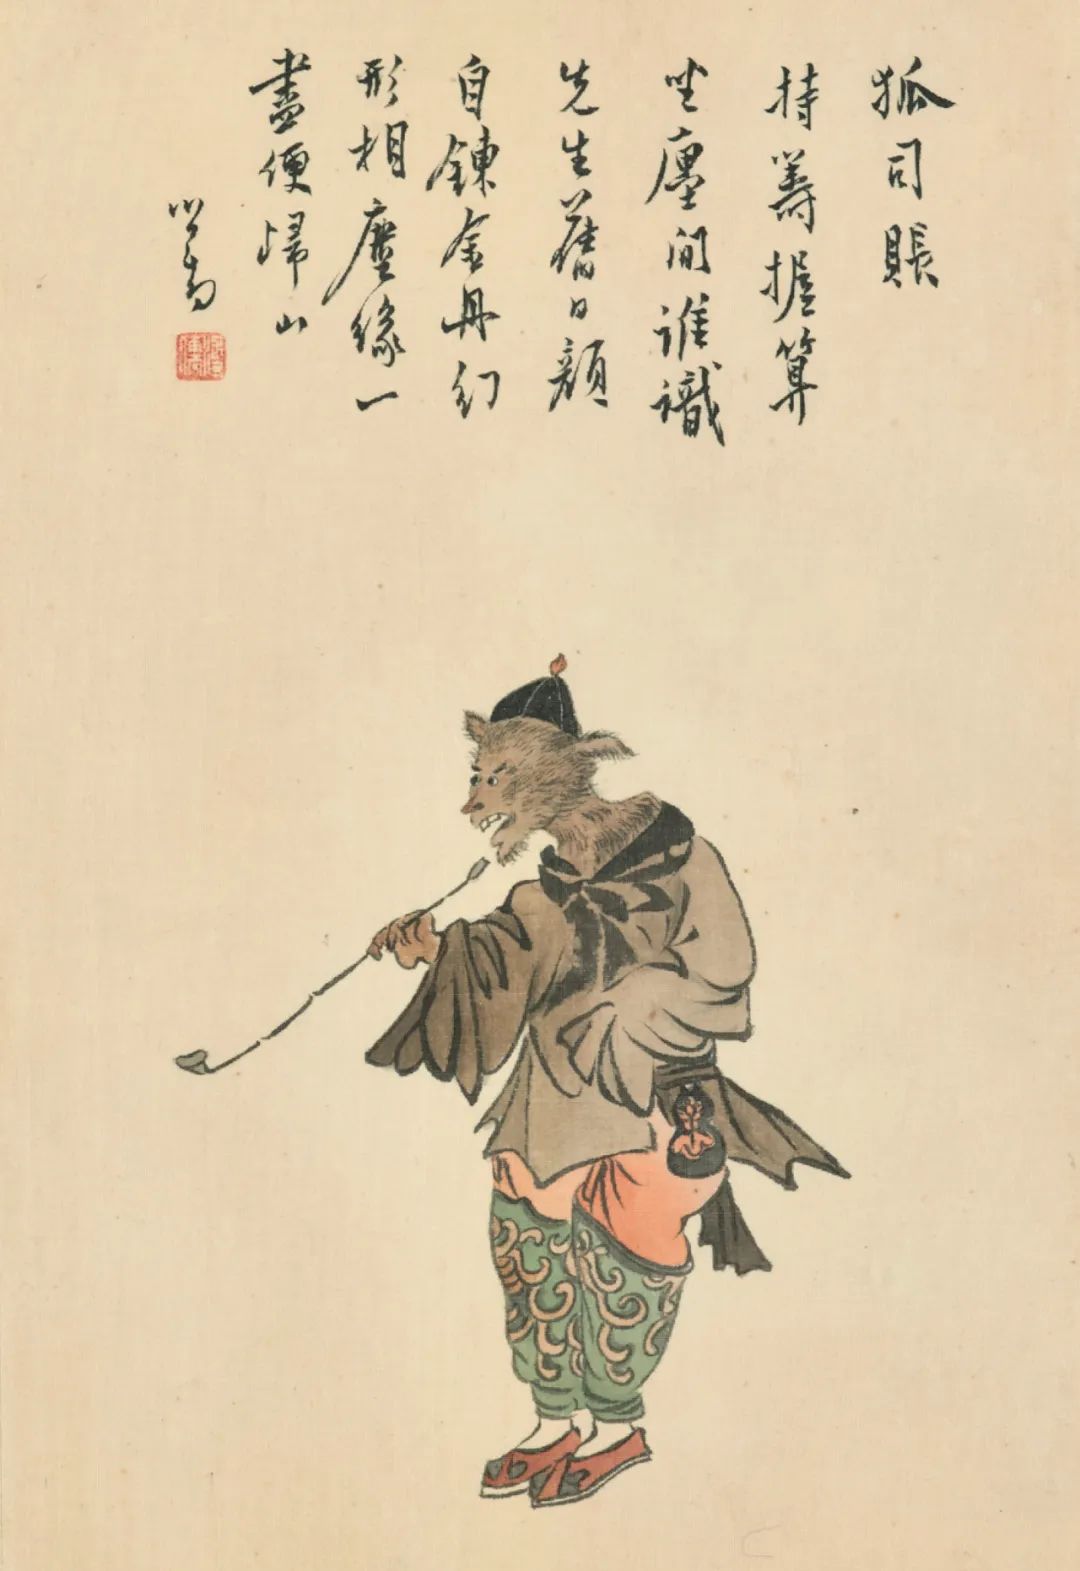 狐司賬
持籌握算
坐廛間誰識
先生舊日顏
自鍊金丹幻
形相塵緣一
盡便歸山
心畬
溥儒